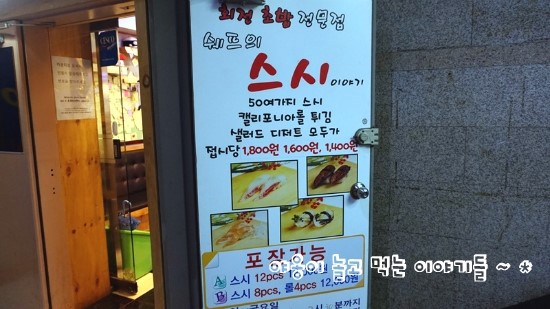 회전 초밥 전문점
쉐프의
스시 이야기
50여가지 스시
캘리포니아롤 튀김
샐러드 디저트 모두가
접시당 1,800원 1,600원, 1,400원
포장가능
A 스시 12pcs
B 스시 8pcs, 롤4pcs
야옹이 놀고 먹는 이야기들 ~ *